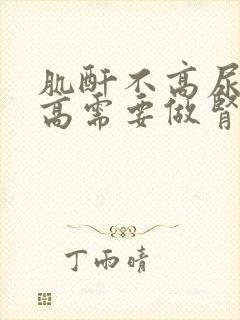 肌酐不高尿
高需要做肾
丁雨晴